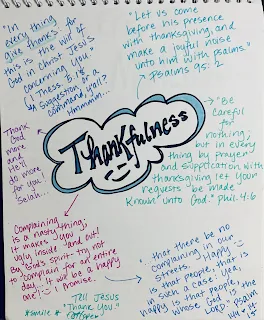 "In every
thing give
thanks for
this is the will of
God in Christ Jesus
concerning you."
Is THESS 5:18
(A suggestion or a
command y'all?
Hmmmm...
"Let us come
before his presence
with thanksgiving, and
make a joyful noise
unto him with psalms"
Psalms 95:2
Thank
God
more
and He'll
do more
for you
Selah...
Thankfulness
"Be
careful
for
nothing;
but in every
thing by prayer
and supplication with
thanksgiving let your
requests be made
known unto God." phil 4:6
Complaining
is a nasty thing;
it makes you
ugly inside and out!
By God's spirit try not
to complain for an entire
day. It will be a happy
one! I Promise.
#smile
Tell Jesus
"Thank You"
often!
"that there be no
complaining in our
streets. Happy
is that people, that is
in such a case: yea,
happy is that people,
whose God is the
LORD." PSALM
144:14-15